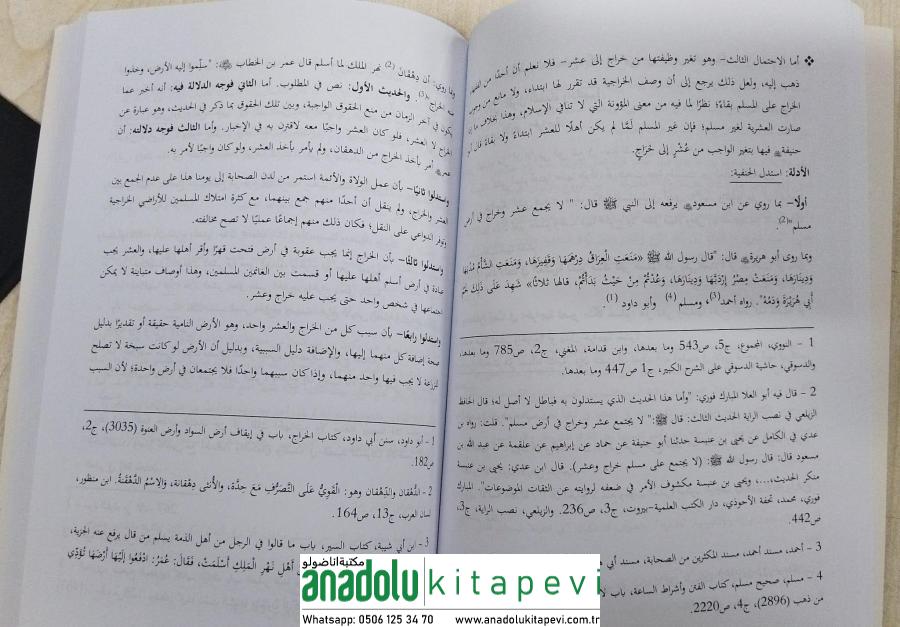 ❖ أما الاحتمال الثالث– وهو تغير وظيفتها من خراج إلى عشر– فلا نعلم أن أحدًا من
ذهب إليه، ولعل ذلك يرجع إلى أن وصف الخراجية قد تقرر لها ابتداء، ولا مانع من
الخراج على المسلم بقاءً؛ نظرًا لما فيه من معنى المؤونة التي لا تنافي الإسلام، وهذا بخلاف ما
صارت العشرية لغير مسلم؛ فإن غير المسلم لَمَّا لم يكن أهلًا للعشر ابتداءً ولا بقاءً قال أبو
حنيفة فيها بتغير الواجب من عُشْرٍ إلى خَرَاجٍ.
الأدلة: استدل الحنفية:
أولًا– بما روي عن ابن مسعود يرفعه إلى النبي ﷺ قال: " لا يجمع عشر وخراج في أرض
مسلم"(2).
وبما روى أبو هريرة قال: "قال رسول الله ﷺ «مَنَعَتِ الْعِرَاقُ دِرْهَمَهَا وَقَفِيزَهَا، وَمَنَعَتِ الشَّأْمُ مُدْيَهَا
وَدِينَارَهَا، وَمَنَعَتْ مِصْرُ إِرْدَبَّهَا وَدِينَارَهَا، وَعُدْتُمْ مِنْ حَيْثُ بَدَأْتُمْ، قالها ثلاثًا» شَهِدَ عَلَى ذَلِكَ
أَبِي هُرَيْرَةَ وَدَمُهُ". رواه أحمد(3)، ومسلم (4) وأبو داود (1).
1 – النووي، المجموع، ج5، ص543 وما بعدها، وابن قدامة، المغني، ج2، ص785 وما بعدها،
والدسوقي، حاشية الدسوقي على الشرح الكبير، ج1 ص447 وما بعدها.
2 – قال فيه أبو العلا المبارك فوري: "وأما هذا الحديث الذي يستدلون به فباطل لا أصل له؛ قال الحافظ
الزيلعي في نصب الراية الحديث الثالث: قال ﷺ:" لا يجتمع عشر وخراج في أرض مسلم". قلت: رواه بن
عدي في الكامل عن يحيى بن عنبسة حدثنا أبو حنيفة عن حماد عن إبراهيم عن علقمة عن عبد الله بن
مسعود قال: قال رسول الله ﷺ: (لا يجتمع على مسلم خراج وعشر). قال ابن عدي: يحيى بن عنبسة
منكر الحديث،...، ويحيى بن عنبسة مكشوف الأمر في ضعفه لروايته عن الثقات الموضوعات". المبارك
فوري، محمد، تحفة الأحوذي، دار الكتب العلمية–بيروت، ج3، ص236. والزيلعي، نصب الراية، ج3،
ص442.
3 – أحمد، مسند أحمد، مسند المكثرين من الصحابة، مسند أبي
4 – مسلم، صحيح مسلم، كتاب الفتن وأشراط الساعة، باب
من ذهب (2896)، ج4، ص2220.
وبما روي– أن دِهْقَانَ (2) نهر الملك لما أسلم قال عمر بن الخطاب: "سلِّموا إليه الأرض، وخذوا
منه الخراج"(3). والحديث الأول: نص في المطلوب. أما الثاني فوجه الدلالة فيه: أنه أخبر عما
يكون في آخر الزمان من منع الحقوق الواجبة، وبين تلك الحقوق بما ذكر في الحديث، وهو عبارة عن
الخراج لا العشر، فلو كان العشر واجبًا معه لاقترن به في الإخبار. وأما الثالث فوجه دلالته: أن
عمر أمر بأخذ الخراج من الدهقان، ولم يأمر بأخذ العشر، ولو كان واجبًا لأمر به.
واستدلوا ثانيًا– بأن عمل الولاة والأئمة استمر من لدن الصحابة إلى يومنا هذا على عدم الجمع بين
العشر والخراج، ولم ينقل أن أحدًا منهم جمع بينهما، مع كثرة امتلاك المسلمين للأراضي الخراجية
وتوفر الدواعي على النقل؛ فكان ذلك منهم إجماعًا عمليًا لا تصح مخالفته.
واستدلوا ثالثًا– بأن الخراج إنما يجب عقوبة في أرض فتحت قهرًا وأقر أهلها عليها، والعشر يجب
عبادة في أرض أسلم أهلها عليها أو قسمت بين الغانمين المسلمين، وهذا أوصاف متباينة لا يمكن
اجتماعها في شخص واحد حتى يجب عليه خراج وعشر.
واستدلوا رابعًا– بأن سبب كل من الخراج والعشر واحد، وهو الأرض النامية حقيقة أو تقديرًا بدليل
صحة إضافة كل منهما إليها، والإضافة دليل السببية، وبدليل أن الأرض لو كانت سبخة لا تصلح
للزراعة لا يجب فيها واحد منهما، وإذا كان سببهما واحدًا فلا يجتمعان في أرض واحدة؛ لأن السبب
1 – أبو داود، سنن أبي داود، كتاب الخراج، باب في إيقاف أرض السواد وأرض العنوة (3035)، ج2،
ص182.
2 – الدُّهْقَان والدِّهْقان وهو: الْقَوِيُّ عَلَى التَّصَرُّفِ مَعَ حِدَّة، والأُنثى دِهْقَانة، وَالِاسْمُ الدَّهْقَنَةُ. ابن منظور،
لسان العرب، ج13، ص164.
3 – ابن أبي شيبة، كتاب السير، باب ما قالوا في الرجل من أهل الذمة يسلم من قال يرفع عنه الجزية،
أَهْلِ نَهْرِ الْمَلِكِ أَسْلَمَتْ، فَقَالَ: عُمَرُ: ادْفَعُوا إِلَيْهَا أَرْضَهَا تُؤَدِّي
مكتبة اناضولو
anadolu kitapevi
Whatsapp: 0506 125 34 70 www.anadolukitapevi.com.tr